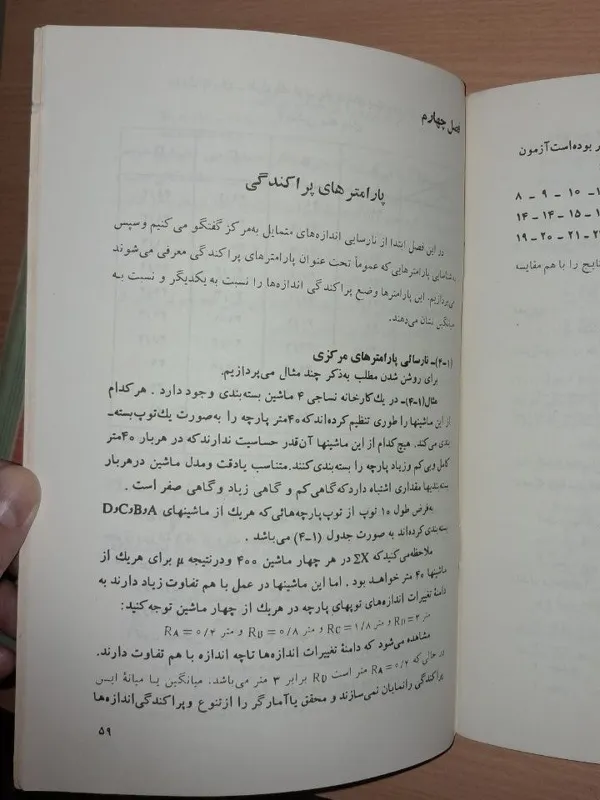 فصل چهارم
پارامترهای پراکندگی
در این فصل ابتدا از نارسایی اندازه‌های متمایل به‌مرکز گفتگو می‌کنیم وسپس
به‌شناسایی پارامترهایی‌که عموماً تحت عنوان پارامترهای پراکندگی معرفی می‌شوند
می‌پردازیم. این پارامترها وضع پراکندگی اندازه‌ها را نسبت به یکدیگر و نسبت به
میانگین نشان می‌دهند.
(۴-۱)ـ نارسائی پارامترهای مرکزی
برای روشن شدن مطلب به‌ذکر چند مثال می‌پردازیم.
مثال(۴-۱)ـ در یك‌کارخانه نساجی ۴ ماشین بسته‌بندی وجود دارد . هرکدام
از این ماشینها را طوری تنظیم کرده‌اندکه ۴۰متر پارچه را به‌صورت یك‌توپ‌بسته‌ـ
بندی می‌کند. هیچ‌کدام از این ماشینها آن‌قدر حساسیت ندارندکه در هربار ۴۰متر
کامل وبی‌کم وزیاد پارچه را بسته‌بندی‌کنند. متناسب بادقت ومدل ماشین درهربار
بسته‌بندیها مقداری اشتباه داردکه‌گاهی‌کم و گاهی زیاد و گاهی صفر است .
به‌فرض طول ۱۰ توپ از توپ‌پارچه‌هائی‌که هریك از ماشینهای AوBوCوD
بسته‌بندی کرده‌اند به صورت جدول (۴-۱) می‌باشد .
ملاحظه‌می‌کنیدکه ΣX در هر چهار ماشین ۴۰۰ ودرنتیجه μ برای هریك از
ماشینها ۴۰ متر خواهد بود . اما این ماشینها در عمل با هم تفاوت زیاد دارند به
دامنهٔ تغییرات اندازه‌های توپهای پارچه در هریك از چهار ماشین توجه‌کنید:
متر RD = ۳ و متر RC = ۱/۸ و متر RB = ۰/۸ و متر RA = ۰/۲
مشاهده می‌شود که دامنهٔ تغییرات اندازه‌ها تاچه اندازه با هم تفاوت دارند.
در حالی‌که RA = ۰/۲ متر است RD برابر ۳ متر می‌باشد. میانگین یا میانهٔ ایـن
پراکندگی رانمایان نمی‌سازند و محقق یاآمارگر را ازتنوع وپراکندگی‌اندازه‌ها
۵۹
ر بوده‌است‌آزمون
۱ـ ۱۰ ـ ۹ ـ ۸
۱ـ ۱۵ ـ ۱۴ ـ ۱۴
۲ـ ۲۱ ـ ۲۰ ـ ۱۹
تایج را باهم مقایسه